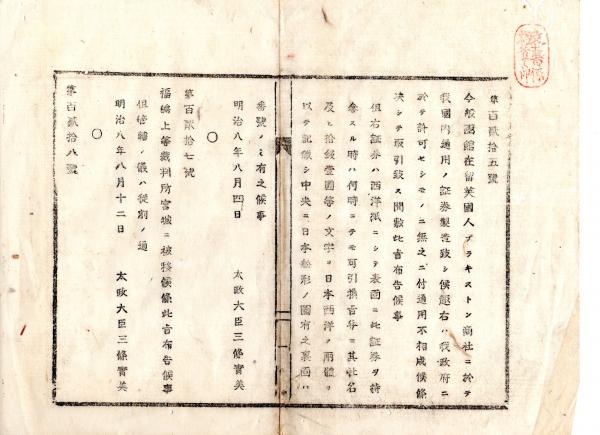 第百貳拾五號
今般函館在留英國人ブラキストン商社ニ於テ
我國内通用ノ証券製造致シ候趣右ハ我政府ニ
於テ許可セシモノニ無之ニ付通用不相成候條
決シテ取引致ス間敷此旨布告候事
但右証券ハ西洋紙ニシテ表面ニ此証券ヲ持
参スル時ハ何時ニテモ可引換旨并ニ其社名
及ヒ拾錢壹圓等ノ文字ヲ日本西洋ノ兩體ヲ
以テ記載シ中央ニ日本船形ノ圖有之裏面ハ
番號ノミ有之候事
明治八年八月四日 太政大臣三條實美
○
第百貳拾七號
福島上等裁判所宮城ニ被移候條此旨布告候事
但管轄ノ儀ハ從前ノ通
明治八年八月十二日 太政大臣三條實美
○
第百貳拾八號